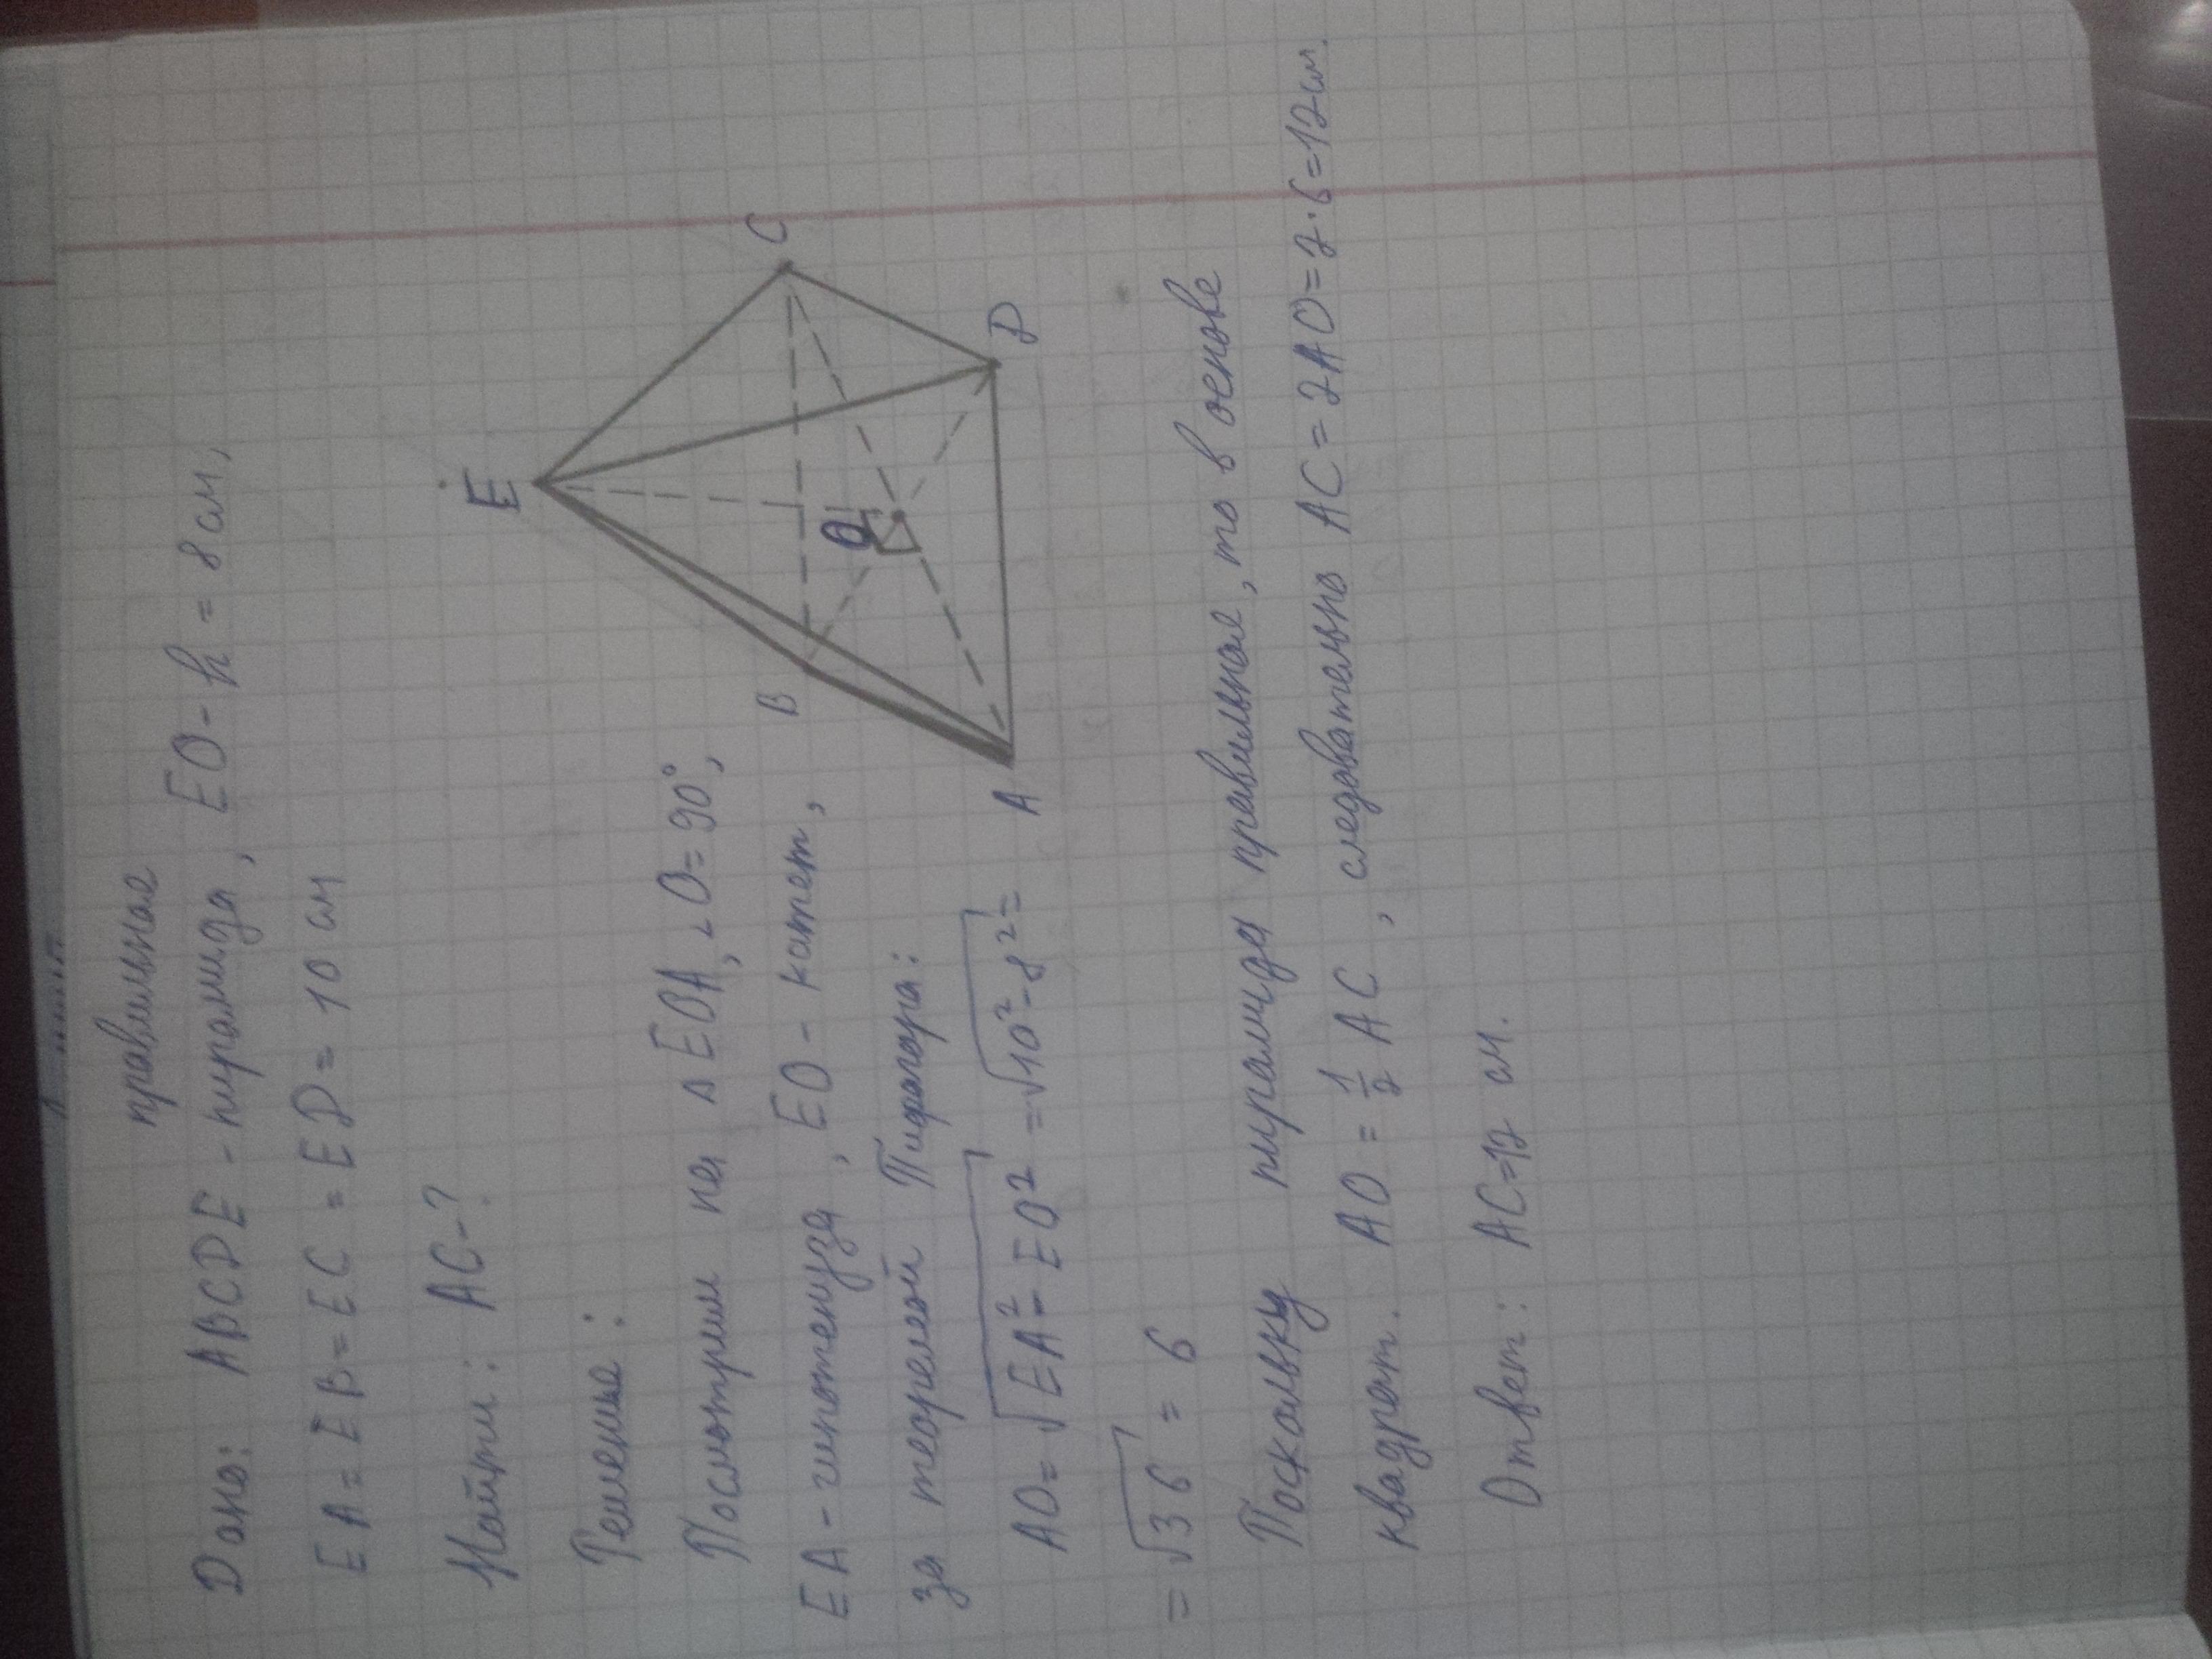 правильная
Дано: ABCDE - пирамида, EO - h = 8 см,
EA = EB = EC = ED = 10 см
Найти: AC - ?
Решение:
Посмотрим на △ EOA, ∠O = 90°,
EA - гипотенуза, EO - катет,
за теоремой Пифагора:
AO = √EA² - EO² = √10² - 8² =
= √36 = 6
Поскольку пирамида правильная, то в основе
квадрат. AO = 1/2 AC, следовательно AC = 2AO = 2·6 = 12 см.
Ответ: AC = 12 см.
E
B
C
O
A
D